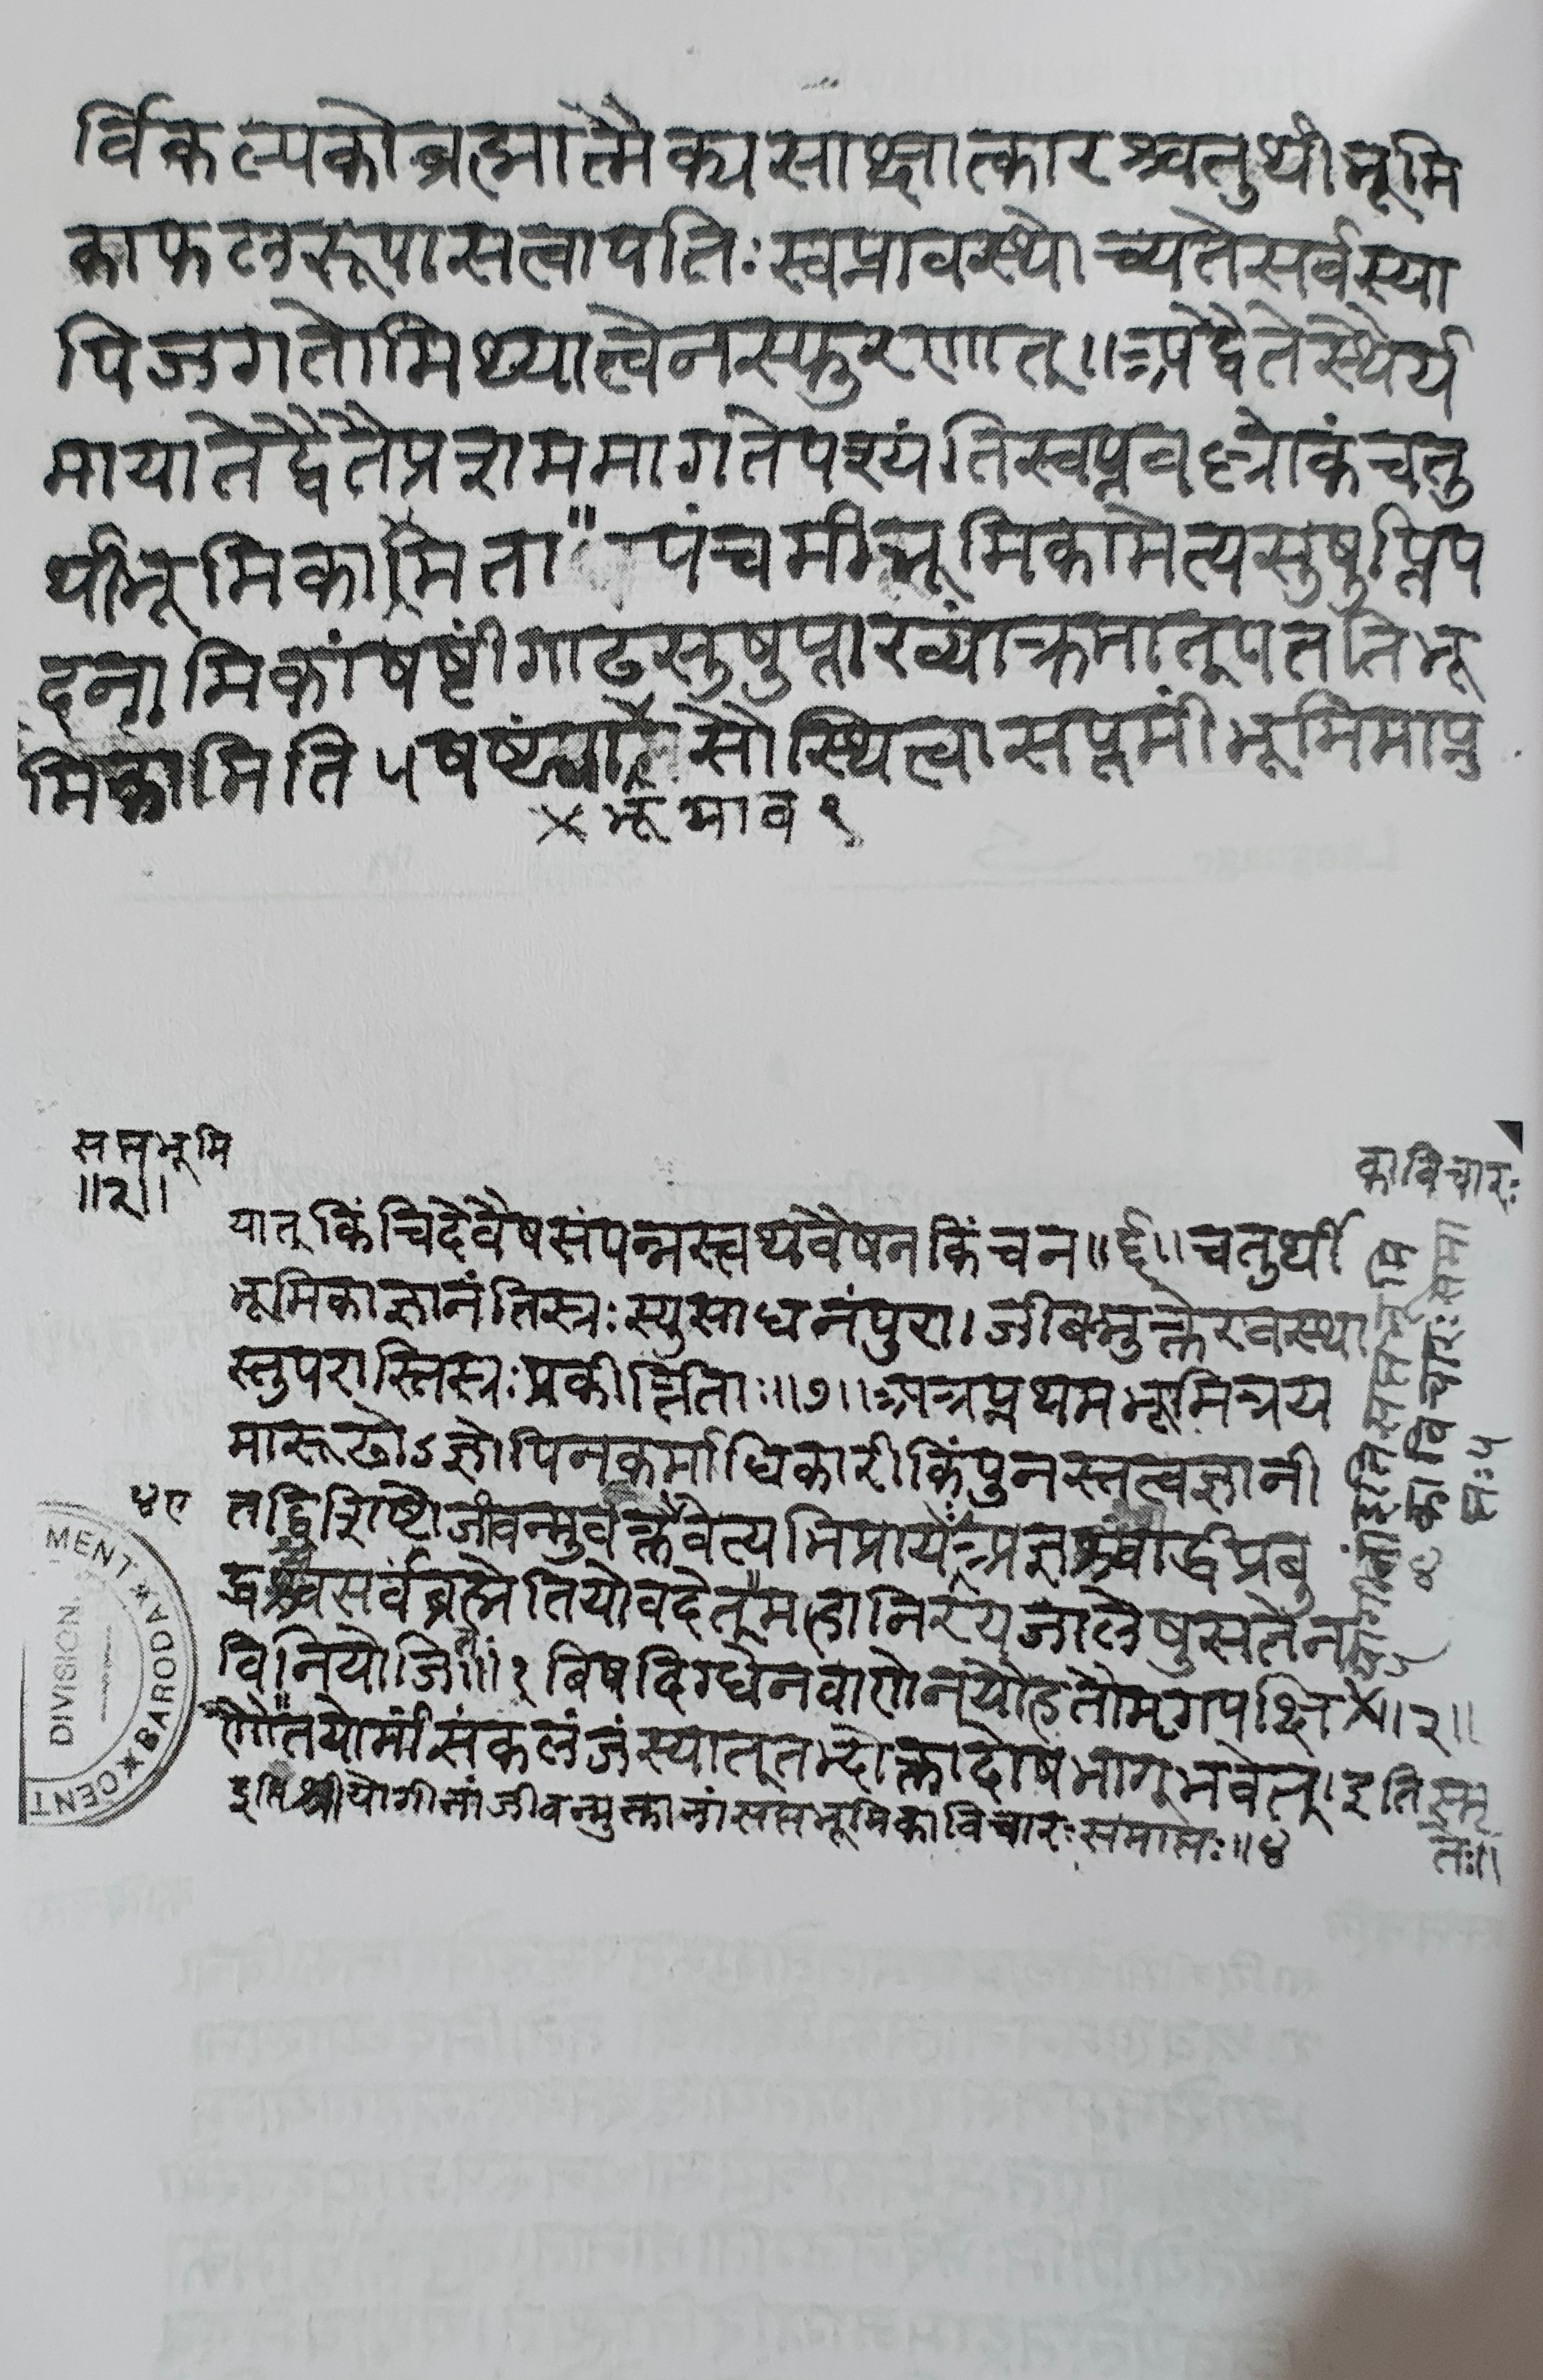 र्विकल्पकोब्रह्मात्मैक्यसाक्षात्कारश्चतुर्थीभूमि
काफलरूपासत्वापतिःस्वप्नावस्थोच्यतेसर्वस्या
पिजगतोमिथ्यात्वेनस्फुरणात्॥अद्वैतेस्थैर्य
मायातेद्वैतेप्रशममागतेपश्यंतिस्वप्नवल्लोकंचतु
र्थीभूमिकामिता" पंचमीभूमिकामेत्यसुषुप्तिप
दनामिकांषष्टींगाढसुषुप्त्याख्यांक्रमात्पततिभू
मिकामिति ५ षष्ट्यां सौस्थित्वासप्तमींभूमिमाप्नु
× भू भाव १
सप्तभूमि
॥२॥
काविचारः
यात् किंचिदेवैषसंपन्नस्त्वथवैषनकिंचन॥६॥चतुर्थी
भूमिकाज्ञानंतिस्त्रःस्युसाधनंपुरा।जीवन्मुक्तेरवस्था
स्तुपरास्तिस्त्रःप्रकीर्त्तिताः॥७॥अत्रप्रथमभूमित्रय
मारूढोऽज्ञोपिनकर्माधिकारीकिंपुनस्तत्वज्ञानी
तद्विशिष्टो जीवन्मुक्तोवेत्यभिप्रायः अज्ञस्यार्द्धप्रबु
द्धस्यसर्वंब्रह्मेतियोवदेत्महानिरयजालेषुसतेन
विनियोजितः॥१ बिषदिग्धेनबाणेनयौहतौमृगपक्षि ×॥२॥
णौ"तयोर्मांसंकलंजंस्यात्तद्भोक्तादोषभाग्भवेत्।इति स्मृ
तेः॥
इतिश्रीयोगीनांजीवन्मुक्तानांसप्तभूमिकाविचारःसमाप्तः॥४
काविचारःसमा
प्तः५
MENT ★ BARODA ★ CENT
DIVISION.